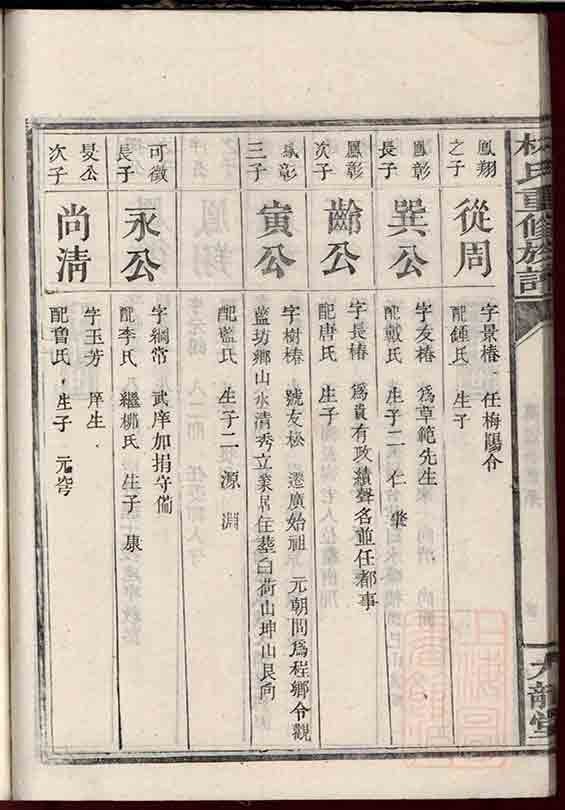 林氏重修族譜
九龍堂
鳳翔
之子
從周
字景椿 任梅陽令
配鍾氏 生子
鳳彰
長子
巽公
字友椿 爲草範先生
配戴氏 生子二 仁
鳳彰
次子
齡公
字長椿 爲貢有政績聲名並任都事
配唐氏 生子
鳳彰
三子
寅公
字樹椿 號友松 遷廣始祖 元朝間爲程鄉令觀
藍坊鄉山水清秀立業居住塟白荷山坤山艮向
配藍氏 生子二 源 淵
可徵
長子
永公
字綱常 武庠加捐守備
配李氏 繼柳氏 生子 康
旻公
次子
尚清
字玉芳 庠生
配曾氏 生子 元